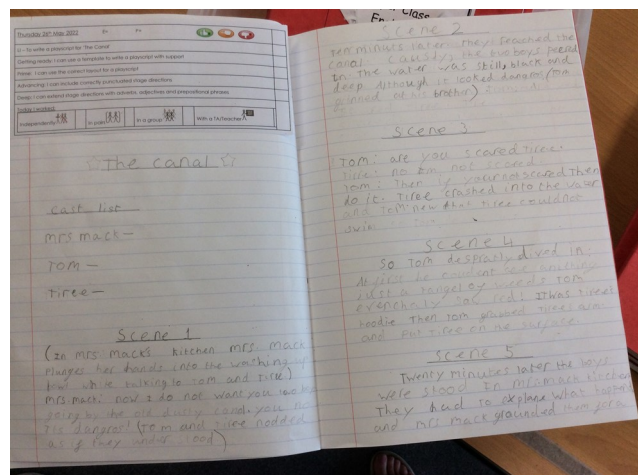 Thursday 26th May 2022
LI - To write a playscript for 'The Canal'
Getting ready: I can use a template to write a playscript with support
Firing: I can use the correct layout for a playscript
Advancing: I can include correctly punctuated stage directions
Deep: I can extend stage directions with adverbs, adjectives and prepositional phrases
Today I worked:
Independently
In pairs
In a group
With a TA/Teacher
The canal
cast list
mrs mack –
Tom –
Tiree –
Scene 1
(In mrs. macks kitchen mrs. mack
Plunges her hands into the washing up
bowl while talking to Tom and Tiree)
mrs mack: now I do not want you two boys
going by the old dusty canal. you no
its dangros! (Tom and Tiree nodded
as if they under stood)
Class
Scene 2
ten minuts later they reached the
canal. the two boys peered
in. The water was still, black and
deep. Although it looked dangros (Tom
grinned at his brother)
Scene 3
Tom: are you scared Tiree.
Tiree: no Im not scared.
Tom: Then if your not scared Then
do it. Tiree crashed into the water
and Tom new that Tiree could not
swim
Scene 4
So Tom despratly dived in.
At first he coudent see anything
Just a tangel of weeds Tom
evenchaly saw red! It was Tirees
hoodie Then Tom grabbed Tirees arm
and Tiree on the surface.
Scene 5
Twenty minutes later the boys
were stood In mrs mack kitchen
They had to explane what happen
and mrs mack grounded them for a